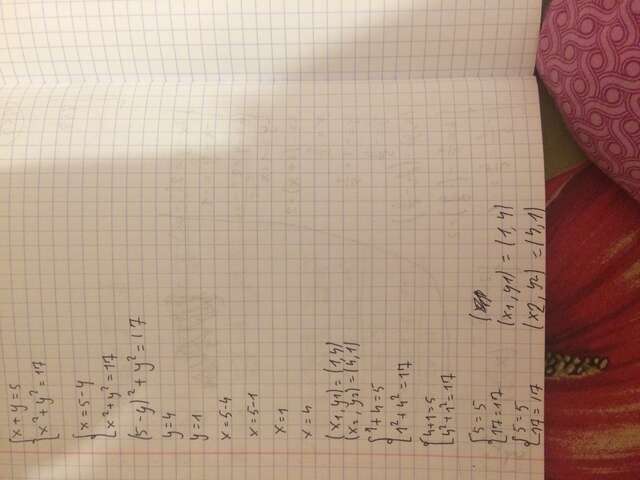 x + y = 5
x² + y² = 17
x = 5 - y
x² + y² = 17
(5 - y)² + y² = 17
y = 4
y = 1
x = 5 - 4
x = 5 - 1
x = 1
x = 4
(x1, y1) = (1, 4)
(x2, y2) = (4, 1)
1 + 4 = 5
1² + 4² = 17
4 + 1 = 5
4² + 1² = 17
5 = 5
17 = 17
(x1, y1) = (1, 4)
5 = 5
17 = 17
(x2, y2) = (4, 1)